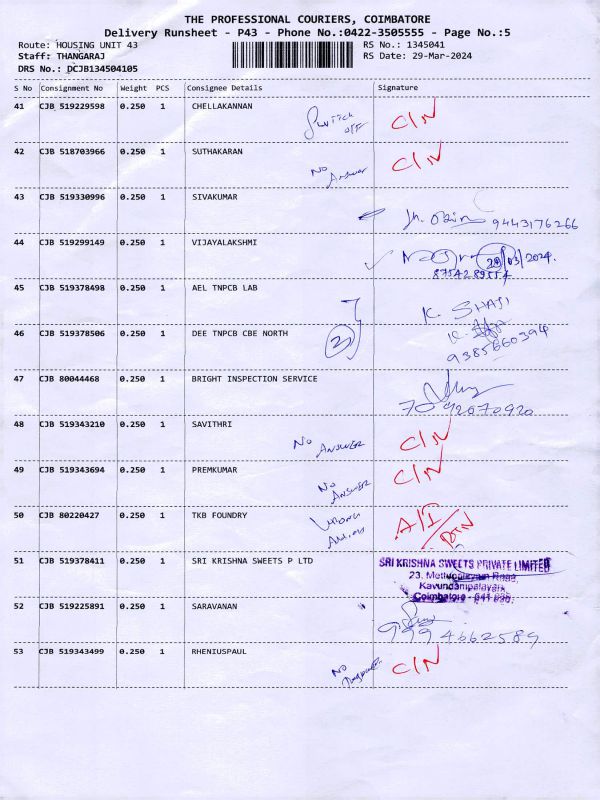 THE PROFESSIONAL COURIERS, COIMBATORE
Delivery Runsheet - P43 - Phone No.:0422-3505555 - Page No.:5
Route: HOUSING UNIT 43
RS No.: 1345041
Staff: THANGARAJ
RS Date: 29-Mar-2024
DRS No.: DCJB134504105
S No Consignment No Weight PCS Consignee Details Signature
41 CJB 519229598 0.250 1 CHELLAKANNAN Switch off C/N
42 CJB 518703966 0.250 1 SUTHAKARAN No Answer C/N
43 CJB 519330996 0.250 1 SIVAKUMAR 9443176266
44 CJB 519299149 0.250 1 VIJAYALAKSHMI 29/03/2024.
45 CJB 519378498 0.250 1 AEL TNPCB LAB K. SHAJI
46 CJB 519378506 0.250 1 DEE TNPCB CBE NORTH 2
9385660394
47 CJB 80044468 0.250 1 BRIGHT INSPECTION SERVICE
7092070920
48 CJB 519343210 0.250 1 SAVITHRI No Answer C/N
49 CJB 519343694 0.250 1 PREMKUMAR No Answer C/N
50 CJB 80220427 0.250 1 TKB FOUNDRY A/I RTN
51 CJB 519378411 0.250 1 SRI KRISHNA SWEETS P LTD SRI KRISHNA SWEETS PRIVATE LIMITED
23, Mettupalayam Road,
Kavundampalayam,
Coimbatore - 641 030.
52 CJB 519225891 0.250 1 SARAVANAN
9994662589
53 CJB 519343499 0.250 1 RHENIUSPAUL No C/N